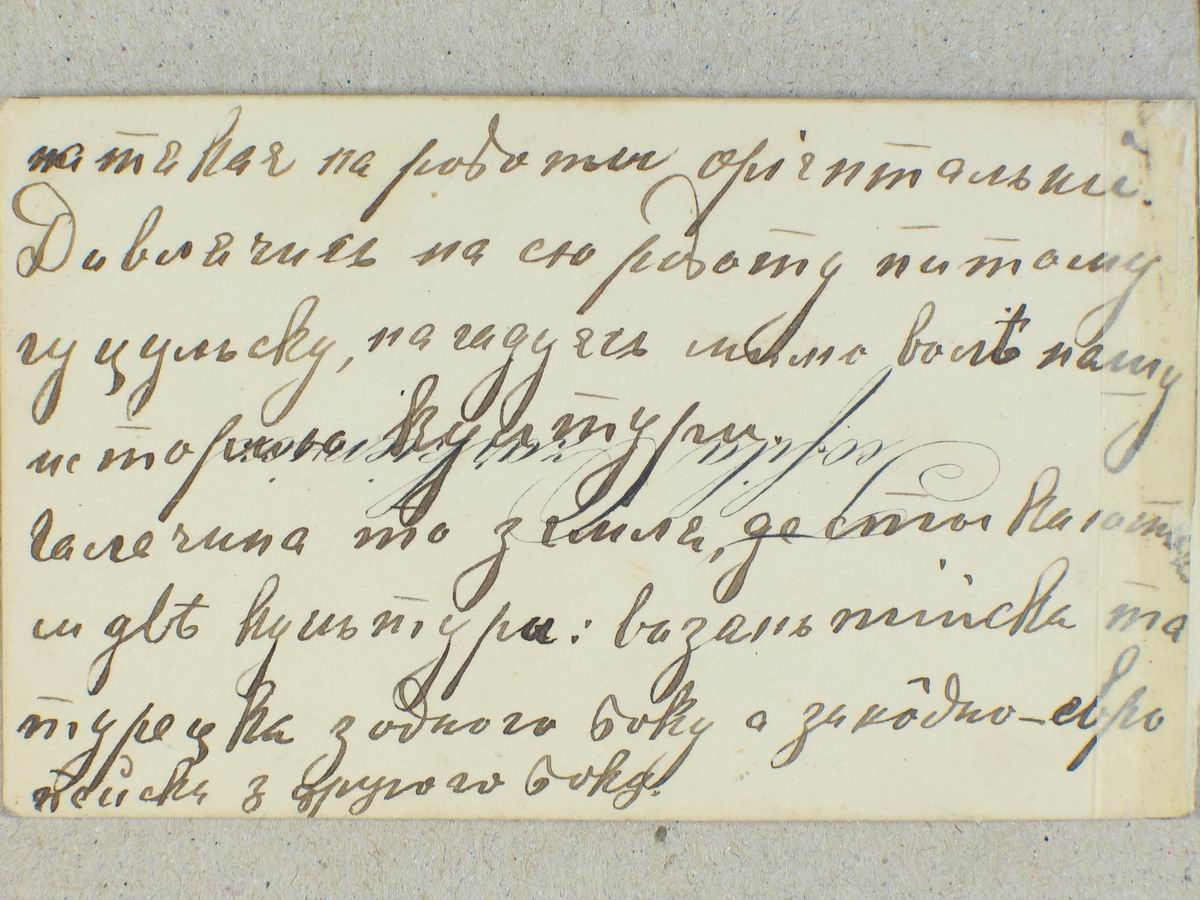 натякая на роботы оріентальни.
Дивлячись на сю роботу питому
гуцульску, нагадуєсь мимо волѣ нашу
исторію культуры.
Галечина то земля, де стыкаютъ
ми двѣ культури: визаньтійска та
турецка з одного боку а захôдно-евро
пейска з другого боку.